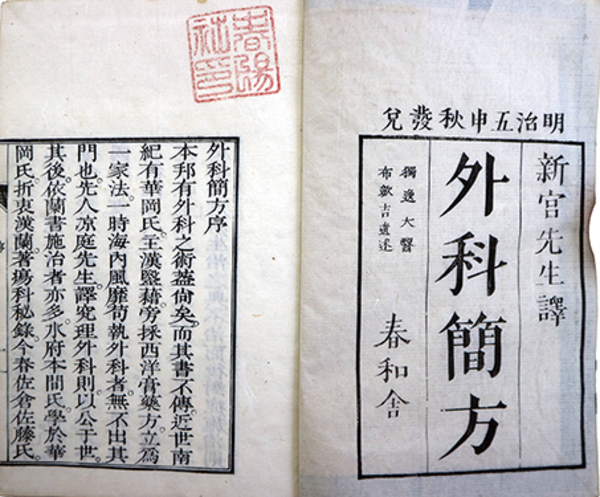 明治五申秋發兌
新宮先生譯
外科簡方
獨逸大醫
布歛吉遺述
春和舍
春陽
社印
外科簡方序
本邦有外科之術蓋尙矣。而其書不傳。近世南
紀有華岡氏。主漢醫藉。旁採西洋膏藥方。立為
一家法。一時海內風靡。苟執外科者。無不出其
門也。先人凉庭先生。譯究理外科則。以公于世。
其後。依蘭書施治者亦多。水府本間氏學於華
岡氏。折衷漢蘭。著瘍科秘錄。今春佐倉佐藤氏。